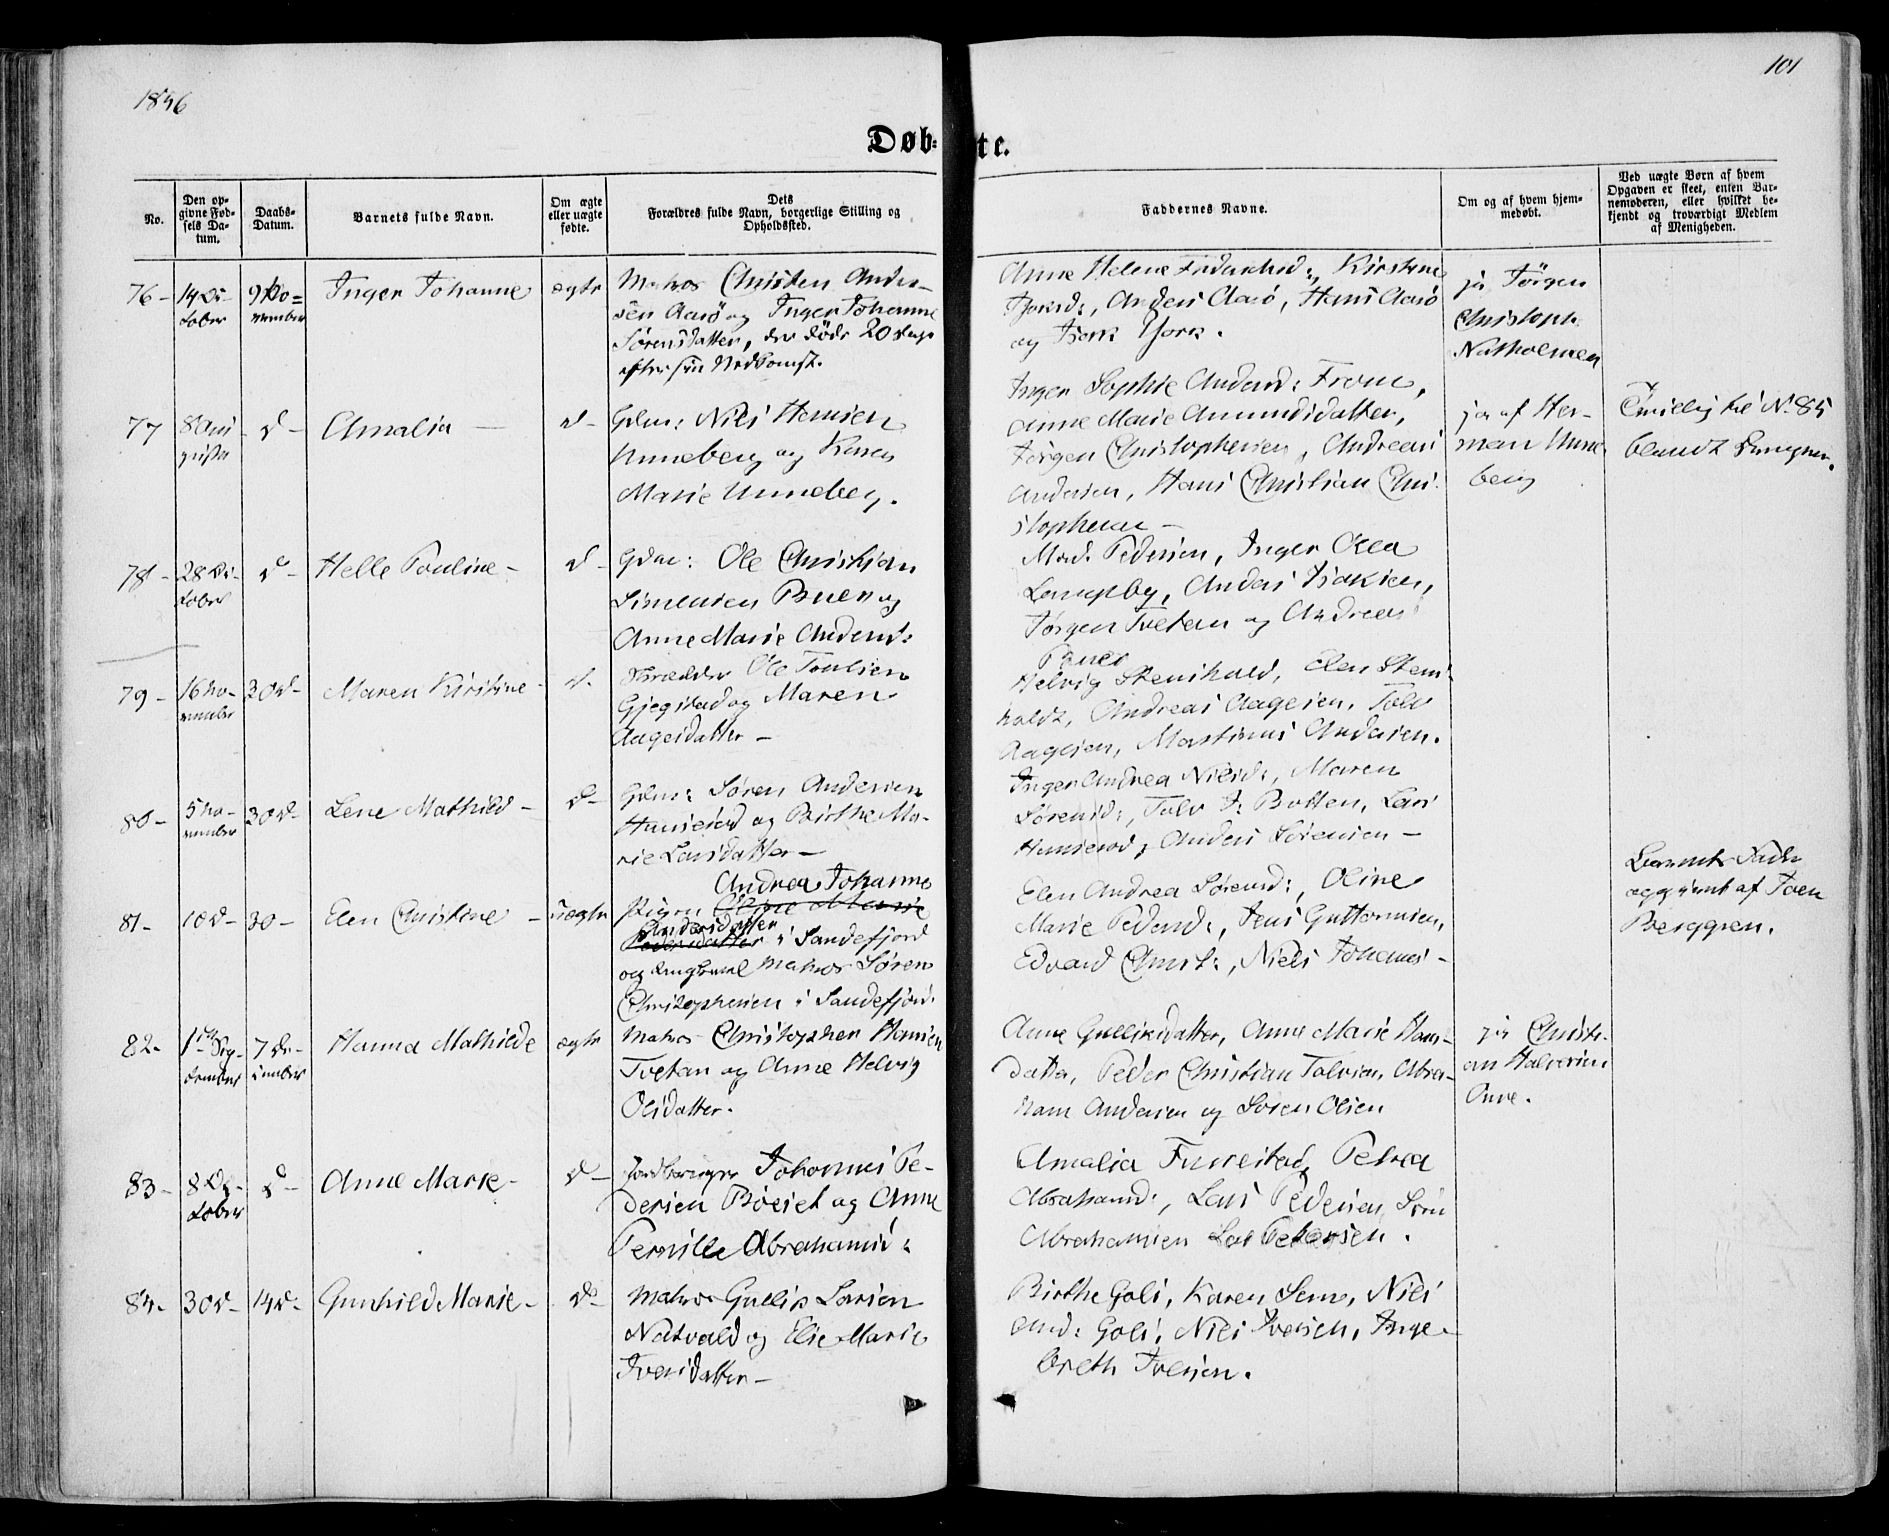 1846
101
Døb-te.
No.
Den op-
givne Fød-
sels Da-
tum.
Daabs-
Datum.
Barnets fulde Navn.
Om ægte
eller uægte
fødte.
Dets
Forældres fulde Navn, borgerlige Stilling og
Opholdssted.
Faddernes Navne.
Om og af hvem hjem-
medøbt.
Ved uægte Børn af hvem
Opgaven er skeet, enten Bar-
nemoderen, eller hvilket be-
kjendt og troværdigt Medlem
af Menigheden.
76 - 14 Oc-
tober
9 No=
vember
Inger Johanne
ægte
Matros Christen Ander-
sen Aasø og Inger Johanne
Sørensdatter, der døde 20 dage
efter sin Nedkomst.
Anne Helene, Kirstine
Anders Aasø, Hans Aasø
og
ja Jørgen
Christoph.
Natholmen
77 8 Au-
gust
d -
Amalia -
d -
Gdm: Nils Hansen
Unneberg og Karen
Marie Unneberg.
Inger Sophie Andersd:
Anne Marie Amundsdatter,
Jørgen Christophersen, Andreas
Andersen, Hans Christian Chri-
stophersen -
ja af Her-
man Unne
berg
Tvillig til No 85
blandt Drengene.
78 - 28 Oc-
tober
d -
Helle Pouline -
d -
Gdm: Ole Christian
Simensen Buer og
Anne Marie Andersd:
Mad. Pedersen, Inger Olea
Anders Isaksen,
Jørgen Tvetan og Andreas
Buer
79 - 16 No-
vember
30 d -
Maren Kirstine -
d.
Ole
Gjegstad og Maren
Aagesdatter -
Helvig Stensholdt, Elen Stens-
holdt, Andreas Aagesen, Tolv
Aagesen, Martinus Andersen.
80 - 5 No-
vember
30 d -
Lene Mathild -
d -
Gdm: Søren Andersen
Hunserød og Birthe Ma-
rie Larsdatter -
Inger Andrea Nilsd:, Maren
Sørensd:, Tolv Botten, Lars
Hunserød, Anders Sørensen -
81 - 10 d - 30 -
Elen Christine -
uægte
Andrea Johanne
Pigen Marie
Andersdatter
i Sandefjord
og Ungkarl Matros Søren
Christophersen i Sandefjord.
Elen Andrea Sørensd:, Oline
Marie Pedersd:, Jens Guttormsen,
Edvard Christ:, Niels Johannes -
Barnets Fader
opgivet af Toen
Berggren.
82 - 1ste Sep-
tember
7 De-
cember
Hanna Mathilde
ægte
Matros Christopher Hansen
Tvetan og Anne Helvig
Olsdatter.
Anne Gulliksdatter, Anne Marie Hans-
datter, Peder Christian Tolvsen, Abra-
ham Andersen og Søren Olsen
ja Christi-
an Halvorsen
83 - 8 Oc-
tober
d -
Anne Marie -
d -
Jordbruger Johannes Pe-
dersen Bøeset og Anne
Pernille Abrahamsd:
Amalia Furrestad, Petrea
Abrahamsd:, Lars Pedersen
Abrahamsen Lar Petersen.
84 - 30 d - 14 d -
Gunhild Marie -
d -
Matros Gullik Larsen
Natvald og Elie Marie
Iversdatter -
Birthe Goli, Karen Sem, Niels
And: Goli, Niels Iversen, Inge-
breth Iversen.